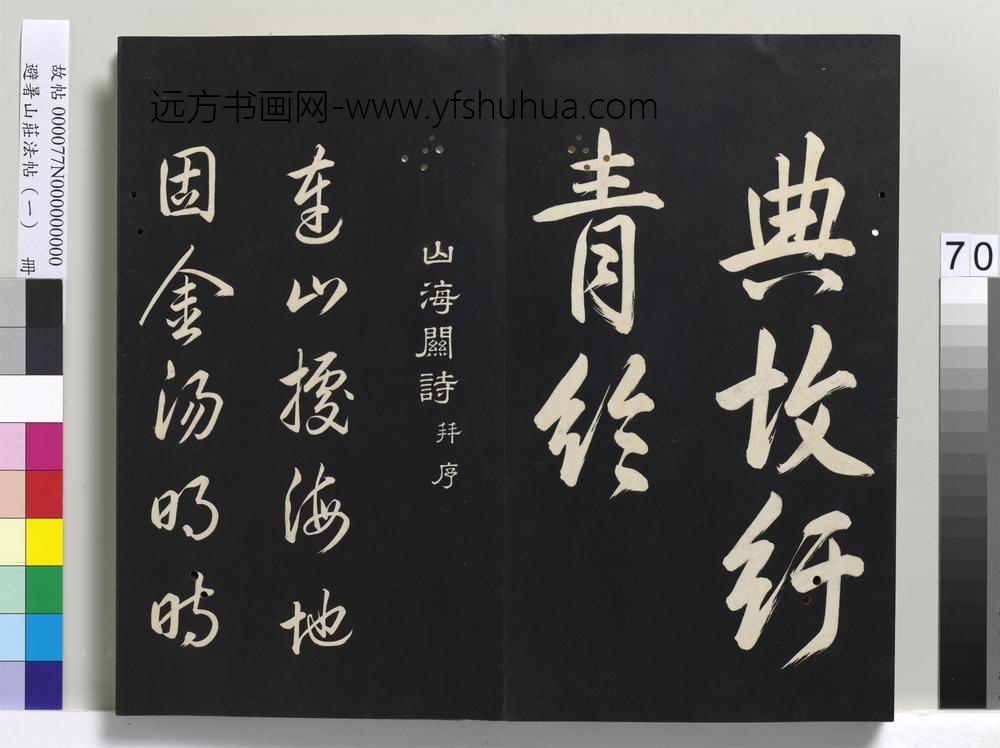 故帖 000077N000000000
避暑山莊法帖（一） 冊
远方书画网-www.yfshuhua.com
典故紆
青綸
山海關詩 幷序
連山據海地
固金湯明時
70